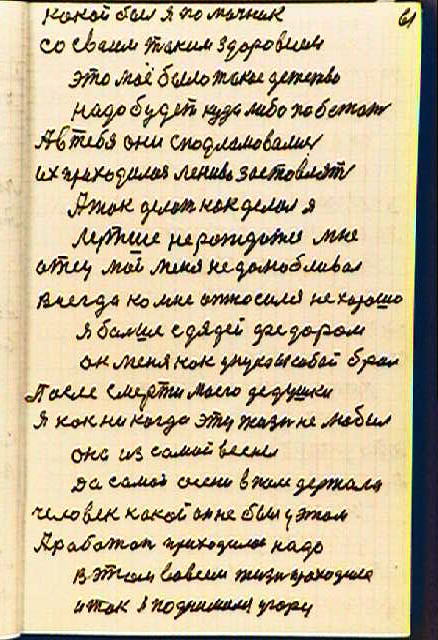 61
какой был я помочник
со своим таким здоровием
это моё было такое детство
надо будет куда либо побежат
А в тебя они сподламовалис
их приходилос лениво заставлят
А так делат как делал я
лертше не рождатся мне
отец мой меня недолюбливал
всегда ко мне относился нехорошо
я был с дядей федором
он меня как внука с собой брал
После смерти моего дедушки
Я как никогда эту жизн не любил
она из самой весны
да самой осени в поле держала
человек какой он не был у этом
А работат приходилос надо
в этом во всем жизн проходила
и так я поднимался у гору